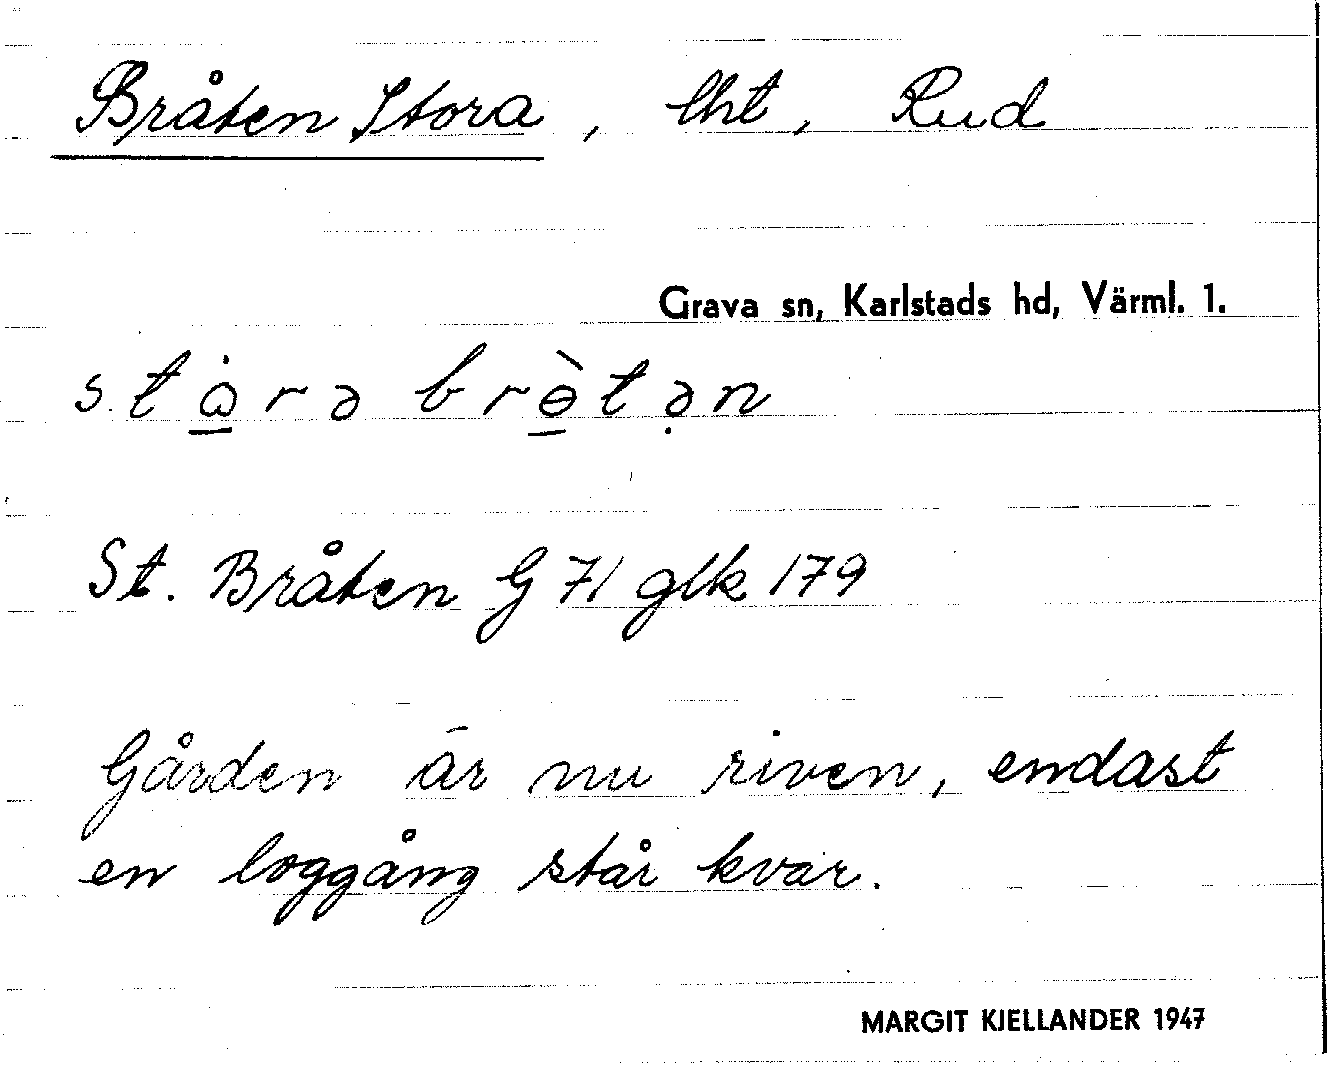 Bråten Stora, lht, Rud
Grava sn, Karlstads hd, Värml. 1.
St. Bråten G 71 glk 179
Gården är nu riven, endast
en loggång står kvar.
MARGIT KJELLANDER 1947